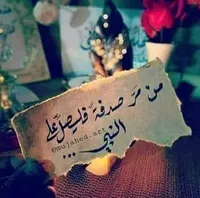 من مرّ صدفة فليصلّ على
النبي ...
@mujahed.art